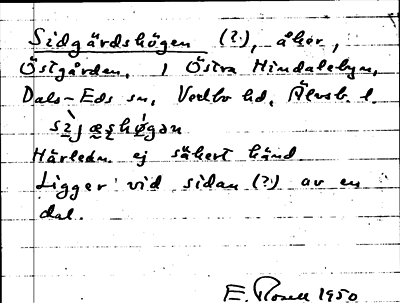 Sidgärdshögen (?), åker,
Östgården, i Östra Hindalebyn,
Dals-Eds sn, Vedbo hd, Älvsb. l.
Härledn. ej säkert känd.
Ligger vid sidan (?) av en
dal.
E. Rosell 1950